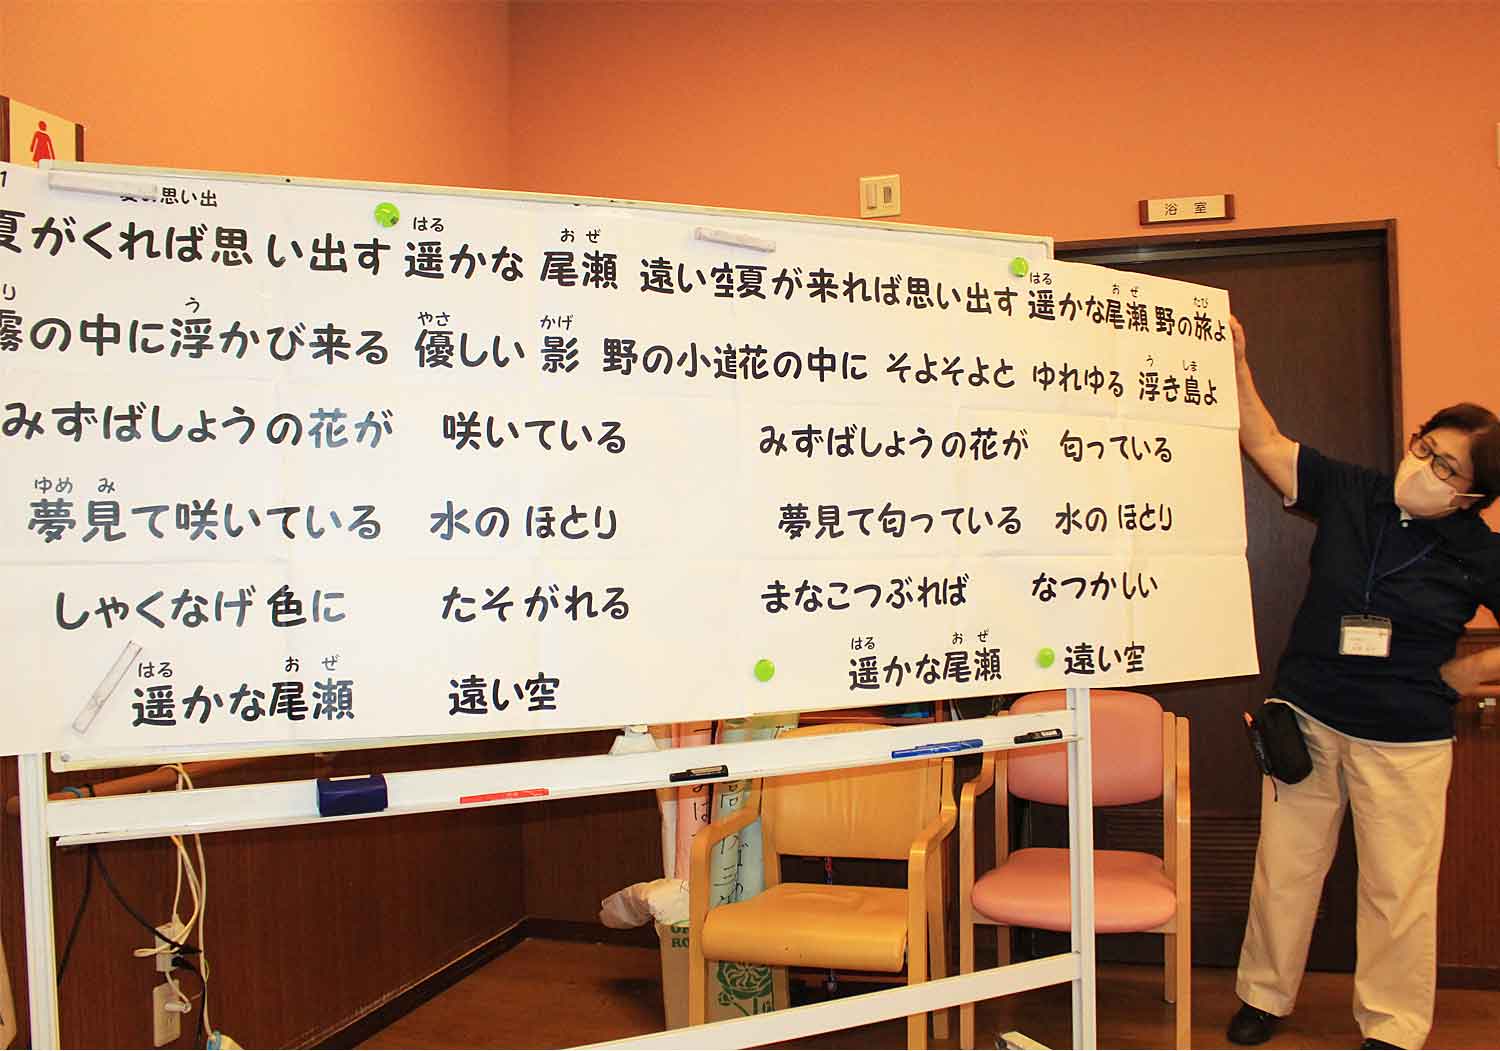 1
夏の思い出
夏がくれば思い出す 遥かな 尾瀬 遠い空
はる おぜ
霧の中に浮かび来る 優しい 影 野の小道
り う やさ かげ
みずばしょうの花が 咲いている
夢見て咲いている 水のほとり
ゆめ み
しゃくなげ色に たそがれる
遥かな尾瀬 遠い空
はる おぜ
夏が来れば思い出す 遥かな尾瀬 野の旅よ
はる おぜ たび
花の中に そよそよと ゆれゆる 浮き島よ
う しま
みずばしょうの花が 匂っている
夢見て匂っている 水のほとり
まなこつぶれば なつかしい
遥かな尾瀬 遠い空
はる おぜ
浴室